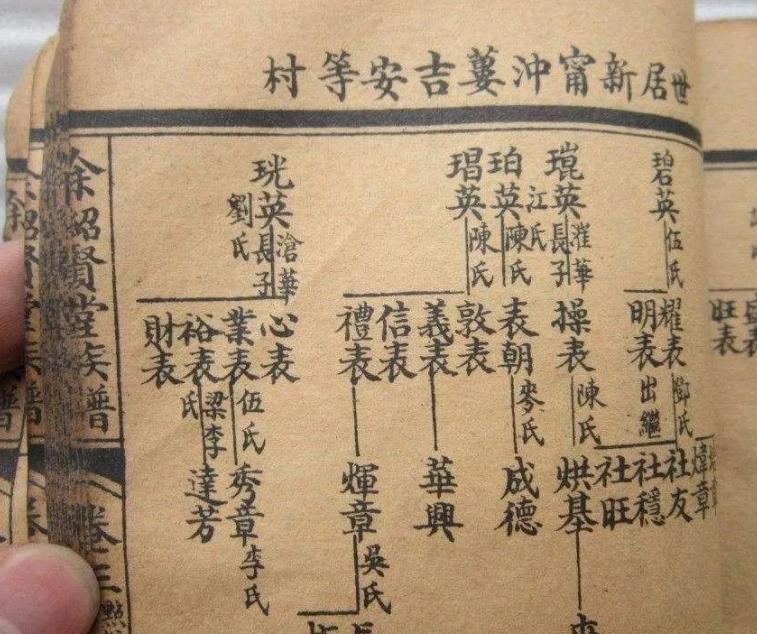 世居新甯沖蔞吉安等村
碧英
伍氏
耀表
鄧氏
明表
出繼
社友
社穩
社旺
煒章
琨英
灌華
長子
江氏
操表
陳氏
烘基
珀英
陳氏
表朝
麥氏
成德
琩英
陳氏
敦表
義表
華興
信表
禮表
煇章
吳氏
珖英
滄華
長子
劉氏
心表
業表
伍氏
秀章
李氏
裕表
梁李氏
達芳
財表
余紹賢堂族譜
卷三
旺表